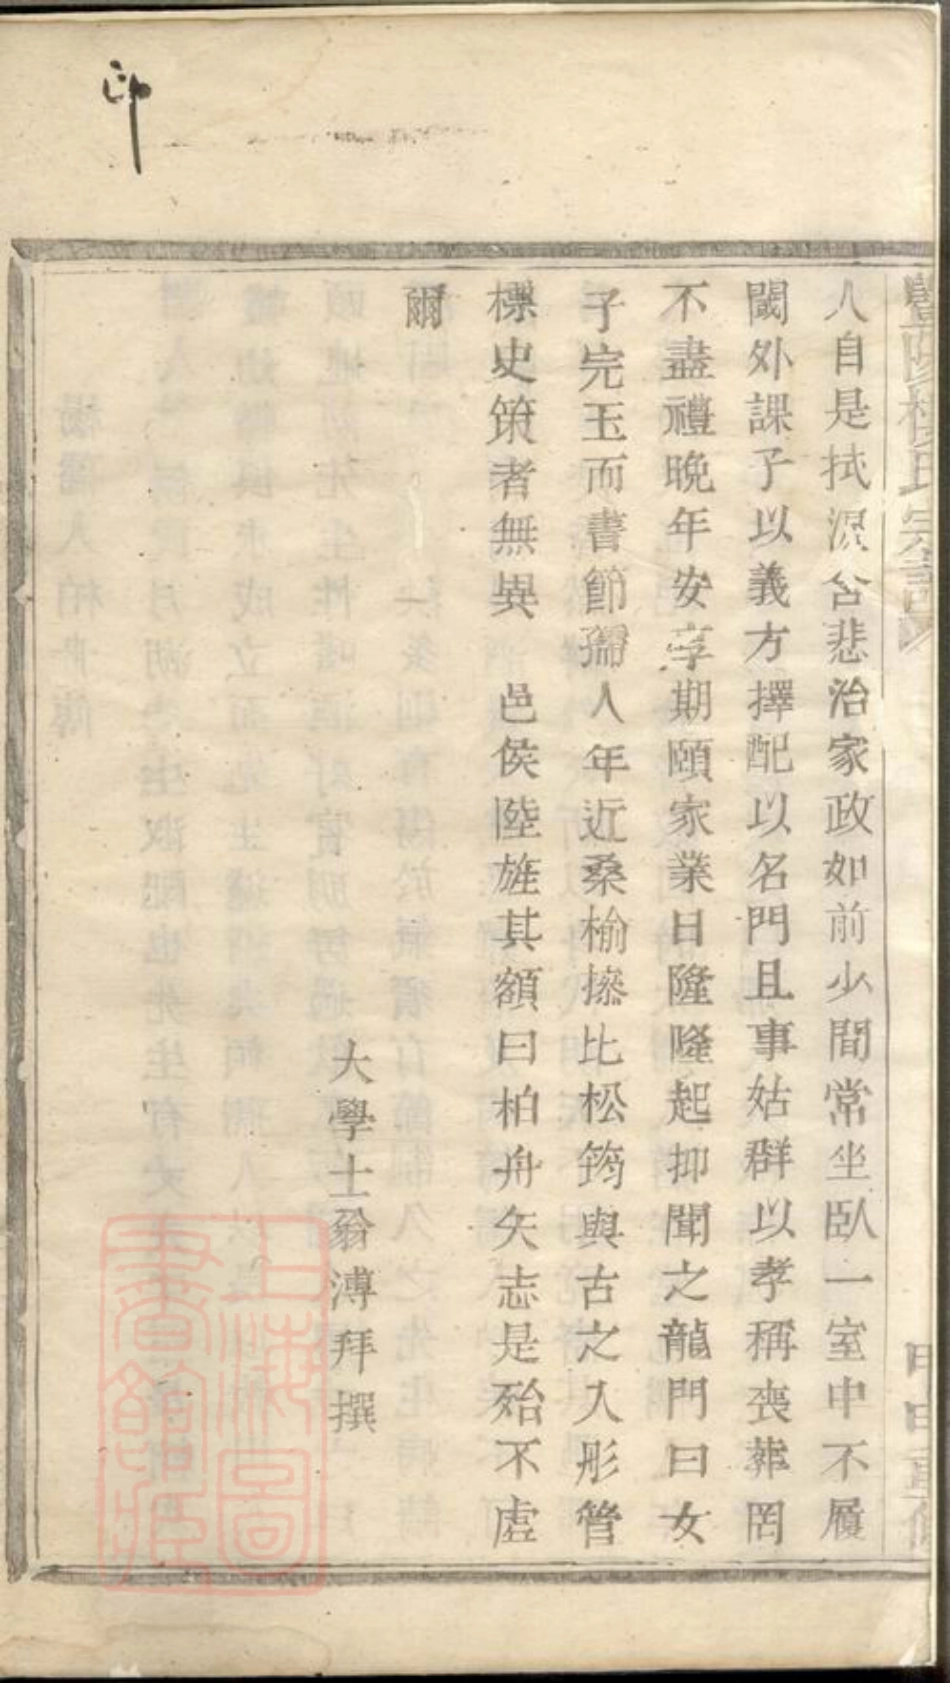 人自是拭淚含悲治家政如前少間常坐臥一室中不履
閾外課子以義方擇配以名門且事姑群以孝稱喪葬罔
不盡禮晚年安享期頤家業日隆隆起抑聞之龍門曰女
子完玉而書節孺人年近桑榆摻比松筠與古之入彤管
標史策者無異　邑侯陸旌其額曰柏舟矢志是殆不虛
爾
大學士翁溥拜撰
印
上海圖
書館藏